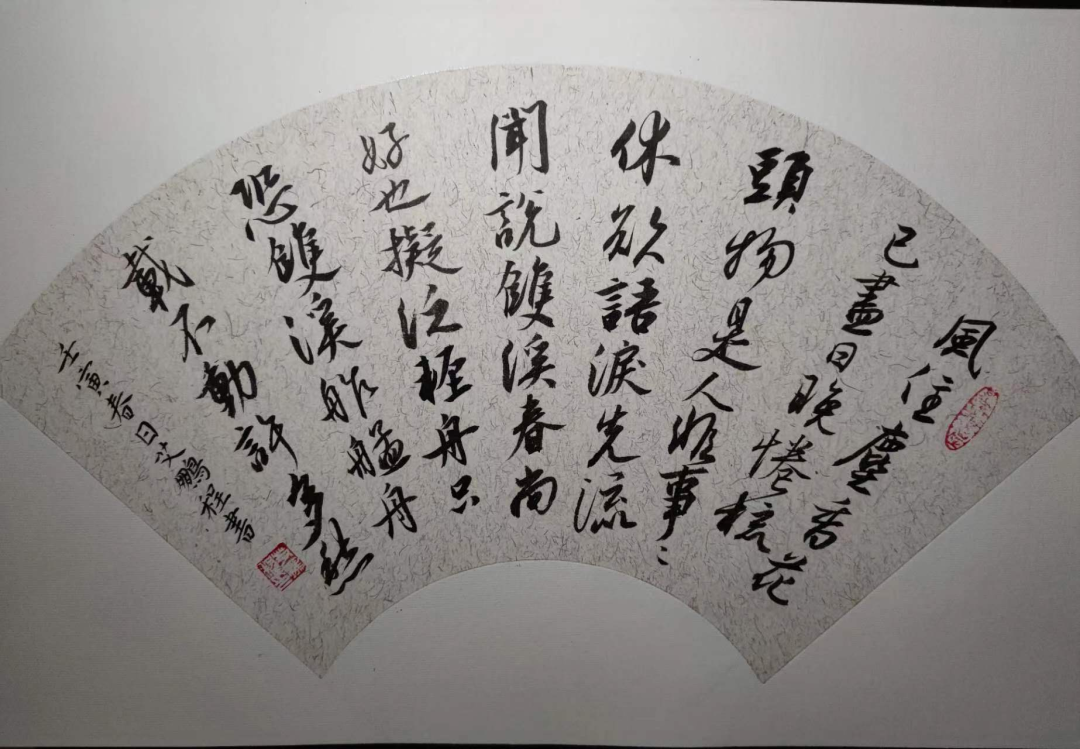 風住塵香花
已盡日晚惓梳
頭物是人非事〻
休欲語淚先流
聞說雙溪春尚
好也擬泛輕舟只
恐雙溪舴艋舟
載不動許多愁
壬寅春日艾鵬程書